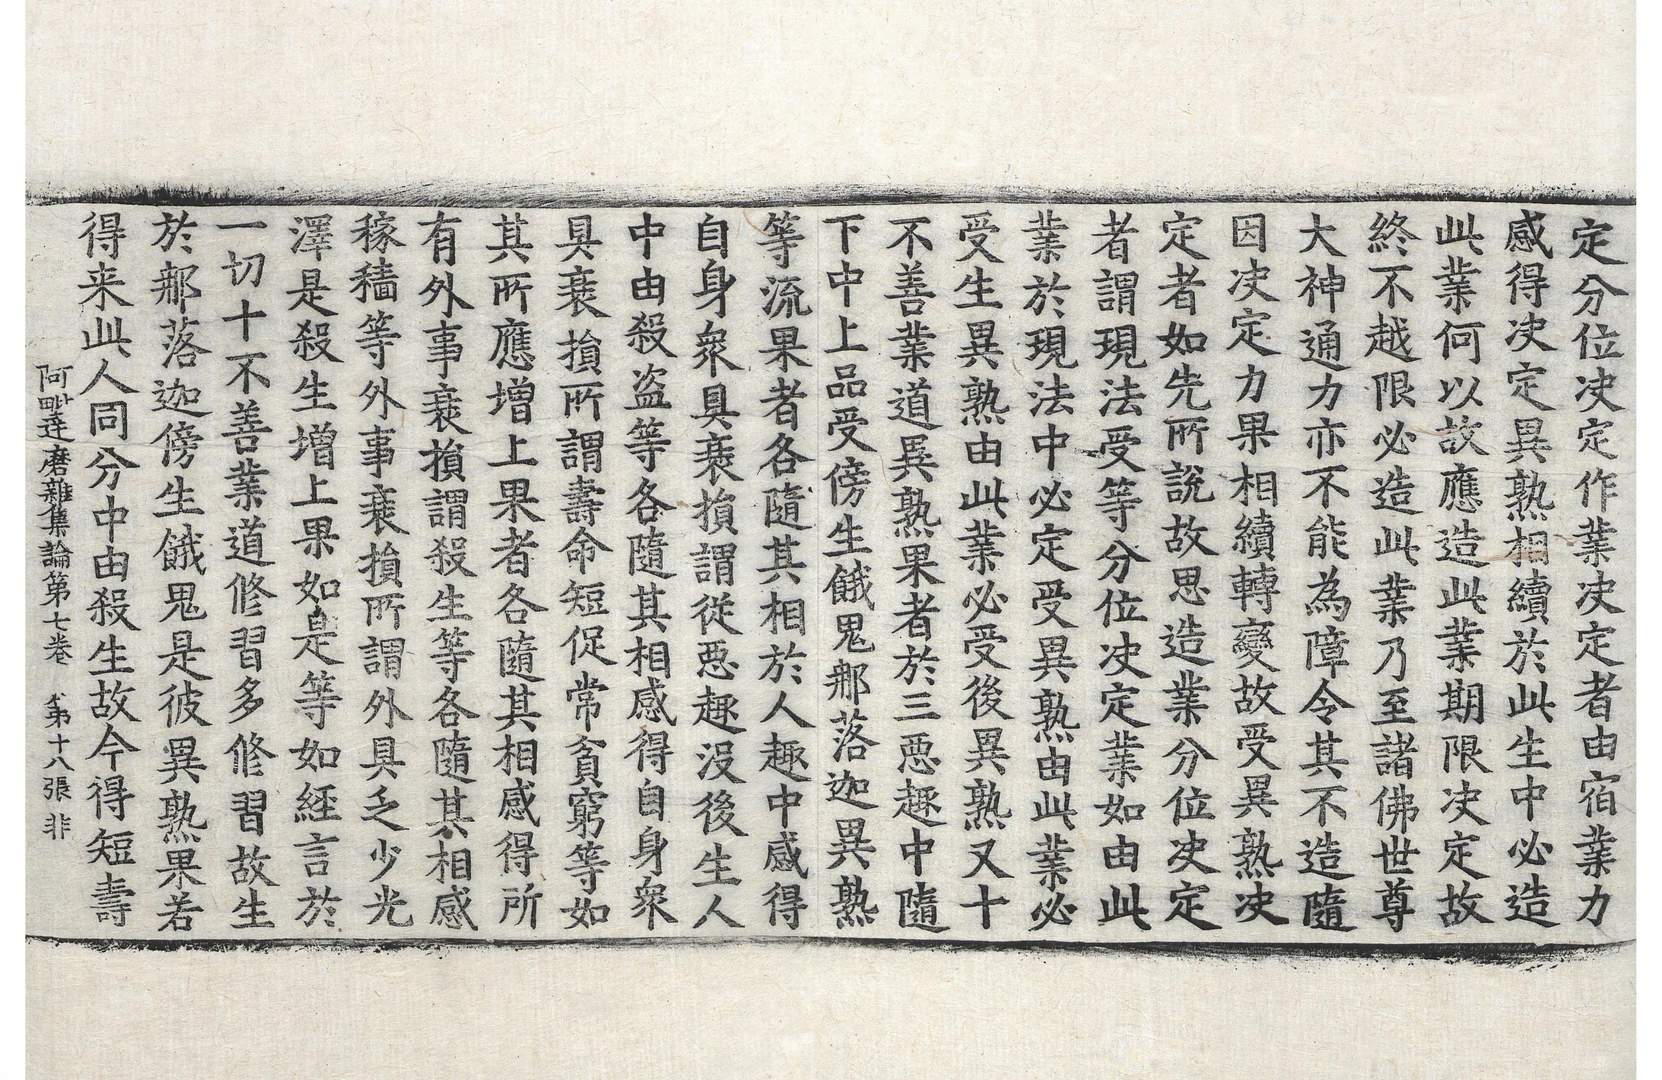 定分位决定作業决定者由宿業力
感得决定異熟相續於此生中必造
此業何以故應造此業期限决定故
終不越限必造此業乃至諸佛世尊
大神通力亦不能為障令其不造隨
因决定力果相續轉變故受異熟决
定者如先所說故思造業分位决定
者謂現法受等分位决定業如由此
業於現法中必定受異熟由此業必
受生異熟由此業必受後異熟又十
不善業道異熟果者於三惡趣中隨
下中上品受傍生餓鬼那落迦異熟
等流果者各隨其相於人趣中感得
自身衆具衰損謂從惡趣沒後生人
中由殺盗等各隨其相感得自身衆
具衰損所謂壽命短促常貧窮等如
其所應增上果者各隨其相感得所
有外事衰損謂殺生等各隨其相感
稼穡等外事衰損所謂外具乏少光
澤是殺生增上果如是等如經言於
一切十不善業道修習多修習故生
於那落迦傍生餓鬼是彼異熟果若
得来此人同分中由殺生故今得短壽
阿毗達磨雜集論第七卷 第十八張 非